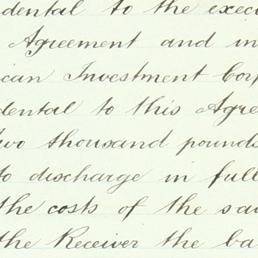 dental to the execu
Agreement and in
ican Investment Corp
dental to this Agre
two thousand pounds
to discharge in full
the costs of the sai
the Receiver the ba